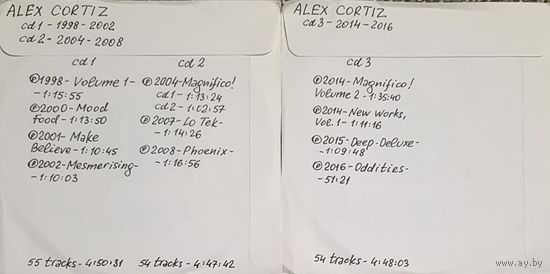 ALEX CORTIZ
cd1 - 1998-2002
cd2 - 2004-2008
cd1
℗1998- Volume 1-
- 1:15:55
℗2000- Mood
food - 1:13:50
℗2001- Make
Believe - 1:10:45
℗2002-Mesmerising-
- 1:10:03
55 tracks - 4:50:31
cd 2
℗2004-Magnifico!
cd1 - 1:13:24
cd2 - 1:02:57
℗2007- Lo Tek-
- 1:14:26
℗2008-Phoenix-
- 1:16:56
54 tracks - 4:47:42
ALEX CORTIZ
cd3 - 2014-2016
cd 3
℗2014-Magnifico!
Volume 2 - 1:35:40
℗2014-New Works,
Vol. 1 - 1:11:16
℗2015-Deep-Deluxe-
- 1:09:48
℗2016-Oddities-
- 51:21
54 tracks - 4:48:03
www.ay.by